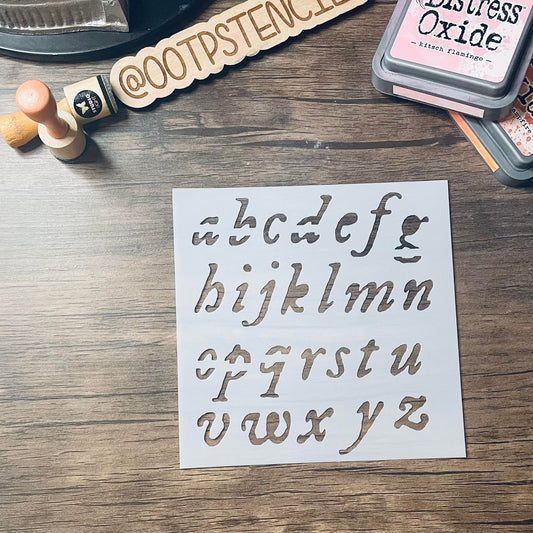 @OOTPSTENCILS
Distress
Oxide
- kitsch flamingo -
abcdefg
hijklmn
opqrstu
vwxyz